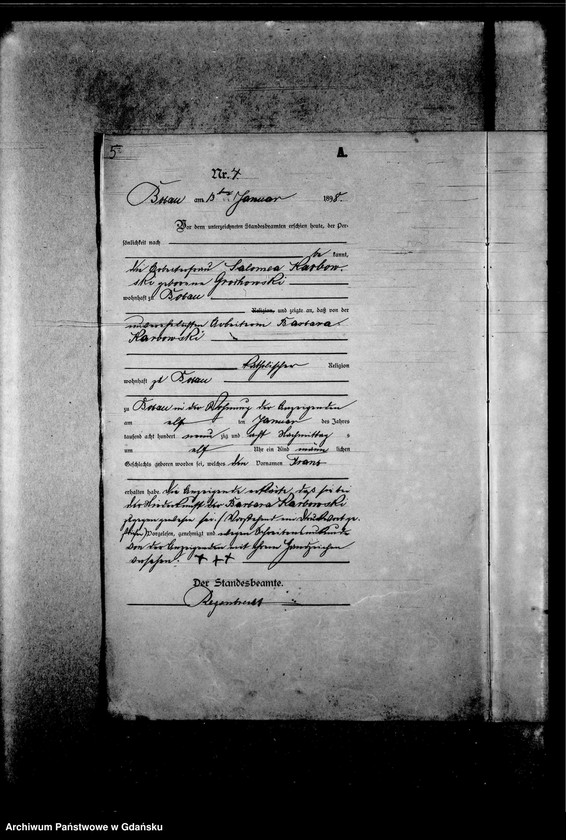 5
A.
Nr. 4.
Bobau am 13ten Januar 1898.
Vor dem unterzeichneten Standesbeamten erschien heute, der Per-
sönlichkeit nach
be kannt,
die Arbeiterfrau Salomea Karbow-
ski geborene Grochowski
wohnhaft zu Bobau
Religion, und zeigte an, daß von der
unverehelichten Arbeiterin Barbara
Karbowski
katholischer Religion
wohnhaft zu Bobau
zu Bobau in der Wohnung der Anzeigenden
am elf ten Januar des Jahres
tausend acht hundert neun zig und acht Nachmittag s
um elf Uhr ein Kind männ lichen
Geschlechts geboren worden sei, welches den Vornamen Franz
erhalten habe. Die Anzeigende erklärte, daß sie bei
der Niederkunft der Barbara Karbowski
zugegen gewesen sei. (Vorstehend ein Druckwort ge-
strichen) Vorgelesen, genehmigt und wegen Schreibensunkunde
von der Anzeigenden mit ihrem Handzeichen
versehen. + + +
Der Standesbeamte.